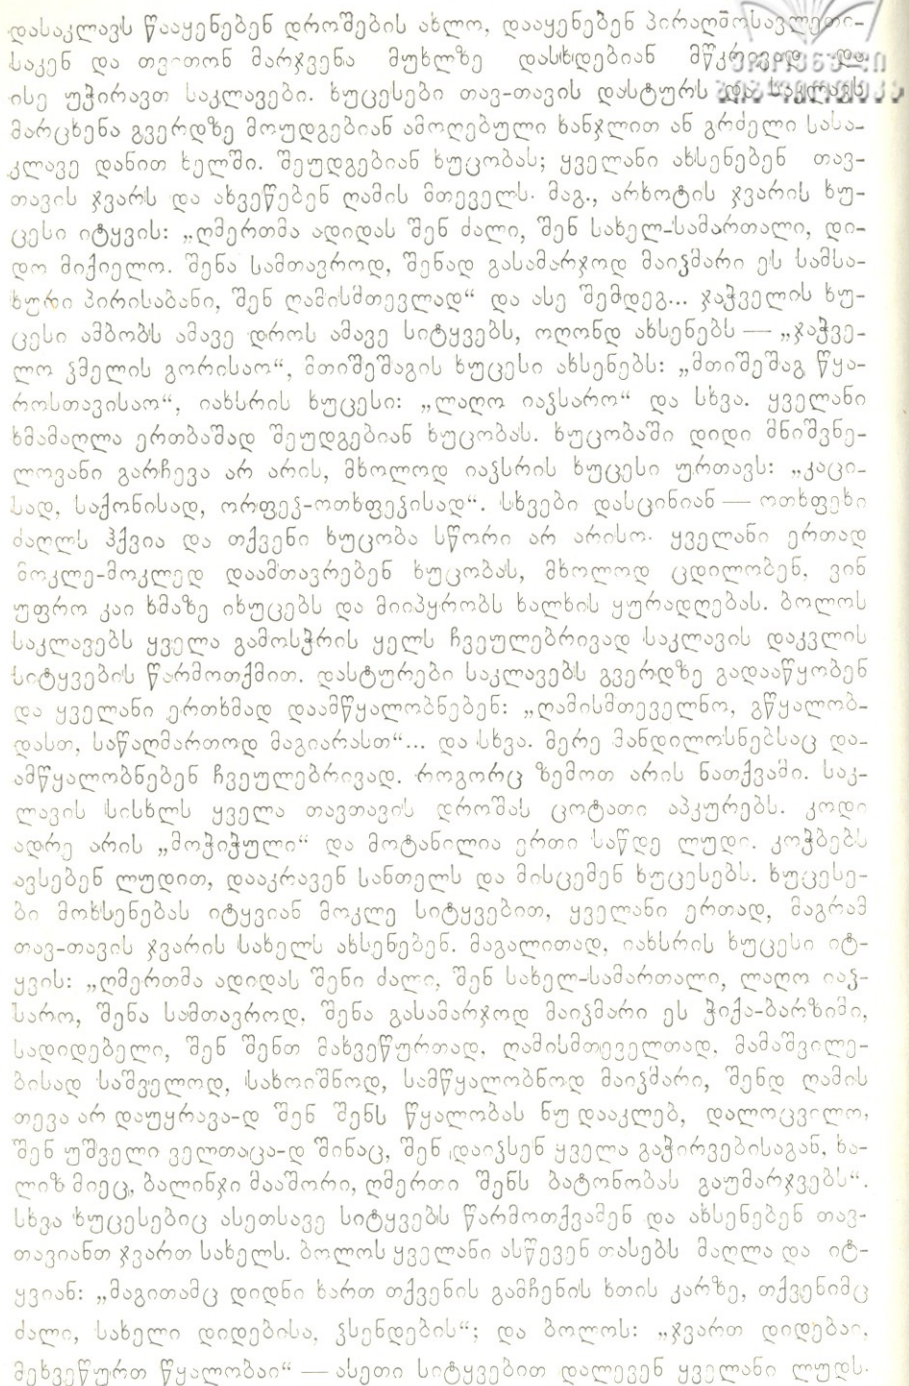 დასაკლავს წააყენებენ დროშების ახლო, დააყენებენ პირაღმოსავლეთი-
საკენ და თვითონ მარჯვენა მუხლზე დასხდებიან მწკრივად და
ისე უჭირავთ საკლავები. ხუცესები თავ-თავის დასტურს და საკლავს
მარცხენა გვერდზე მოუდგებიან ამოღებული ხანჯლით ან გრძელი სასა-
კლავე დანით ხელში. შეუდგებიან ხუცობას; ყველანი ახსენებენ თავ-
თავის ჯვარს და ახვეწებენ ღამის მთეველს. მაგ., არხოტის ჯვარის ხუ-
ცესი იტყვის: „ღმერთმა ადიდას შენ ძალი, შენ სახელ-სამართალი, დი-
დო მიქიელო. შენა სამთავროდ, შენად გასამარჯოდ მაიჴმარი ეს სამსა-
ხური პირისაბანი, შენ ღამისმთევლად“ და ასე შემდეგ... ჯაჭველის ხუ-
ცესი ამბობს ამავე დროს ამავე სიტყვებს, ოღონდ ახსენებს — „ჯაჭვე-
ლო ჴმელის გორისაო“, მთიშეშაგის ხუცესი ახსენებს: „მთიშეშაგ წყა-
როსთავისაო“, იახსრის ხუცესი: „ლაღო იაჴსარო“ და სხვა. ყველანი
ხმამაღლა ერთბაშად შეუდგებიან ხუცობას. ხუცობაში დიდი მნიშვნე-
ლოვანი გარჩევა არ არის, მხოლოდ იაჴსრის ხუცესი ურთავს: „კაცი-
სად, საქონისად, ორფეჴ-ოთხფეჴისად“. სხვები დასცინიან — ოთხფეხი
ძაღლს ჰქვია და თქვენი ხუცობა სწორი არ არისო. ყველანი ერთად
მოკლე-მოკლედ დაამთავრებენ ხუცობას, მხოლოდ ცდილობენ, ვინ
უფრო კაი ხმაზე იხუცებს და მიიპყრობს ხალხის ყურადღებას. ბოლოს
საკლავებს ყველა გამოსჭრის ყელს ჩვეულებრივად საკლავის დაკვლის
სიტყვების წარმოთქმით. დასტურები საკლავებს გვერდზე გადააწყობენ
და ყველანი ერთხმად დაამწყალობნებენ: „ღამისმთეველნო, გწყალობ-
დასთ, საწაღმართოდ მაგიარასთ“... და სხვა. მერე მანდილოსნებსაც და-
ამწყალობნებენ ჩვეულებრივად, როგორც ზემოთ არის ნათქვამი. საკ-
ლავის სისხლს ყველა თავთავის დროშას ცოტათი აპკურებს. კოდი
ადრე არის „მოჭიჭული“ და მოტანილია ერთი საწდე ლუდი. კოჭბებს
ავსებენ ლუდით, დააკრავენ სანთელს და მისცემენ ხუცესებს. ხუცესე-
ბი მოხსენებას იტყვიან მოკლე სიტყვებით, ყველანი ერთად, მაგრამ
თავ-თავის ჯვარის სახელს ახსენებენ. მაგალითად, იახსრის ხუცესი იტ-
ყვის: „ღმერთმა ადიდას შენი ძალი, შენ სახელ-სამართალი, ლაღო იაჴ-
სარო, შენა სამთავროდ, შენა გასამარჯოდ მაიჴმარი ეს ჭიქა-ბარზიმი,
სადიდებელი, შენ შენთ მახვეწურთად, ღამისმთეველთად, მამაშვილე-
ბისად საშველოდ, სახოიშნოდ, სამწყალობნოდ მაიჴმარი, შენდ ღამის
თევა არ დაუყრავა-დ შენ შენს წყალობას ნუ დააკლებ, დალოცვილო,
შენ უშველი ველთაცა-დ შინაც, შენ დაიჴსენ ყველა გაჭირვებისაგან, ხა-
ლიზ მიეც, ბალინჯი მააშორი, ღმერთი შენს ბატონობას გაუმარჯვებს“.
სხვა ხუცესებიც ასეთსავე სიტყვებს წარმოთქვამენ და ახსენებენ თავ-
თავიანთ ჯვართ სახელს. ბოლოს ყველანი ასწევენ თასებს მაღლა და იტ-
ყვიან: „მაგითამც დიდნი ხართ თქვენის გამჩენის ხთის კარზე, თქვენიმც
ძალი, სახელი დიდებისა, ჴსენდების“; და ბოლოს: „ჯვართ დიდებაი,
მეხვეწურთ წყალობაი“ — ასეთი სიტყვებით დალევენ ყველანი ლუდს.